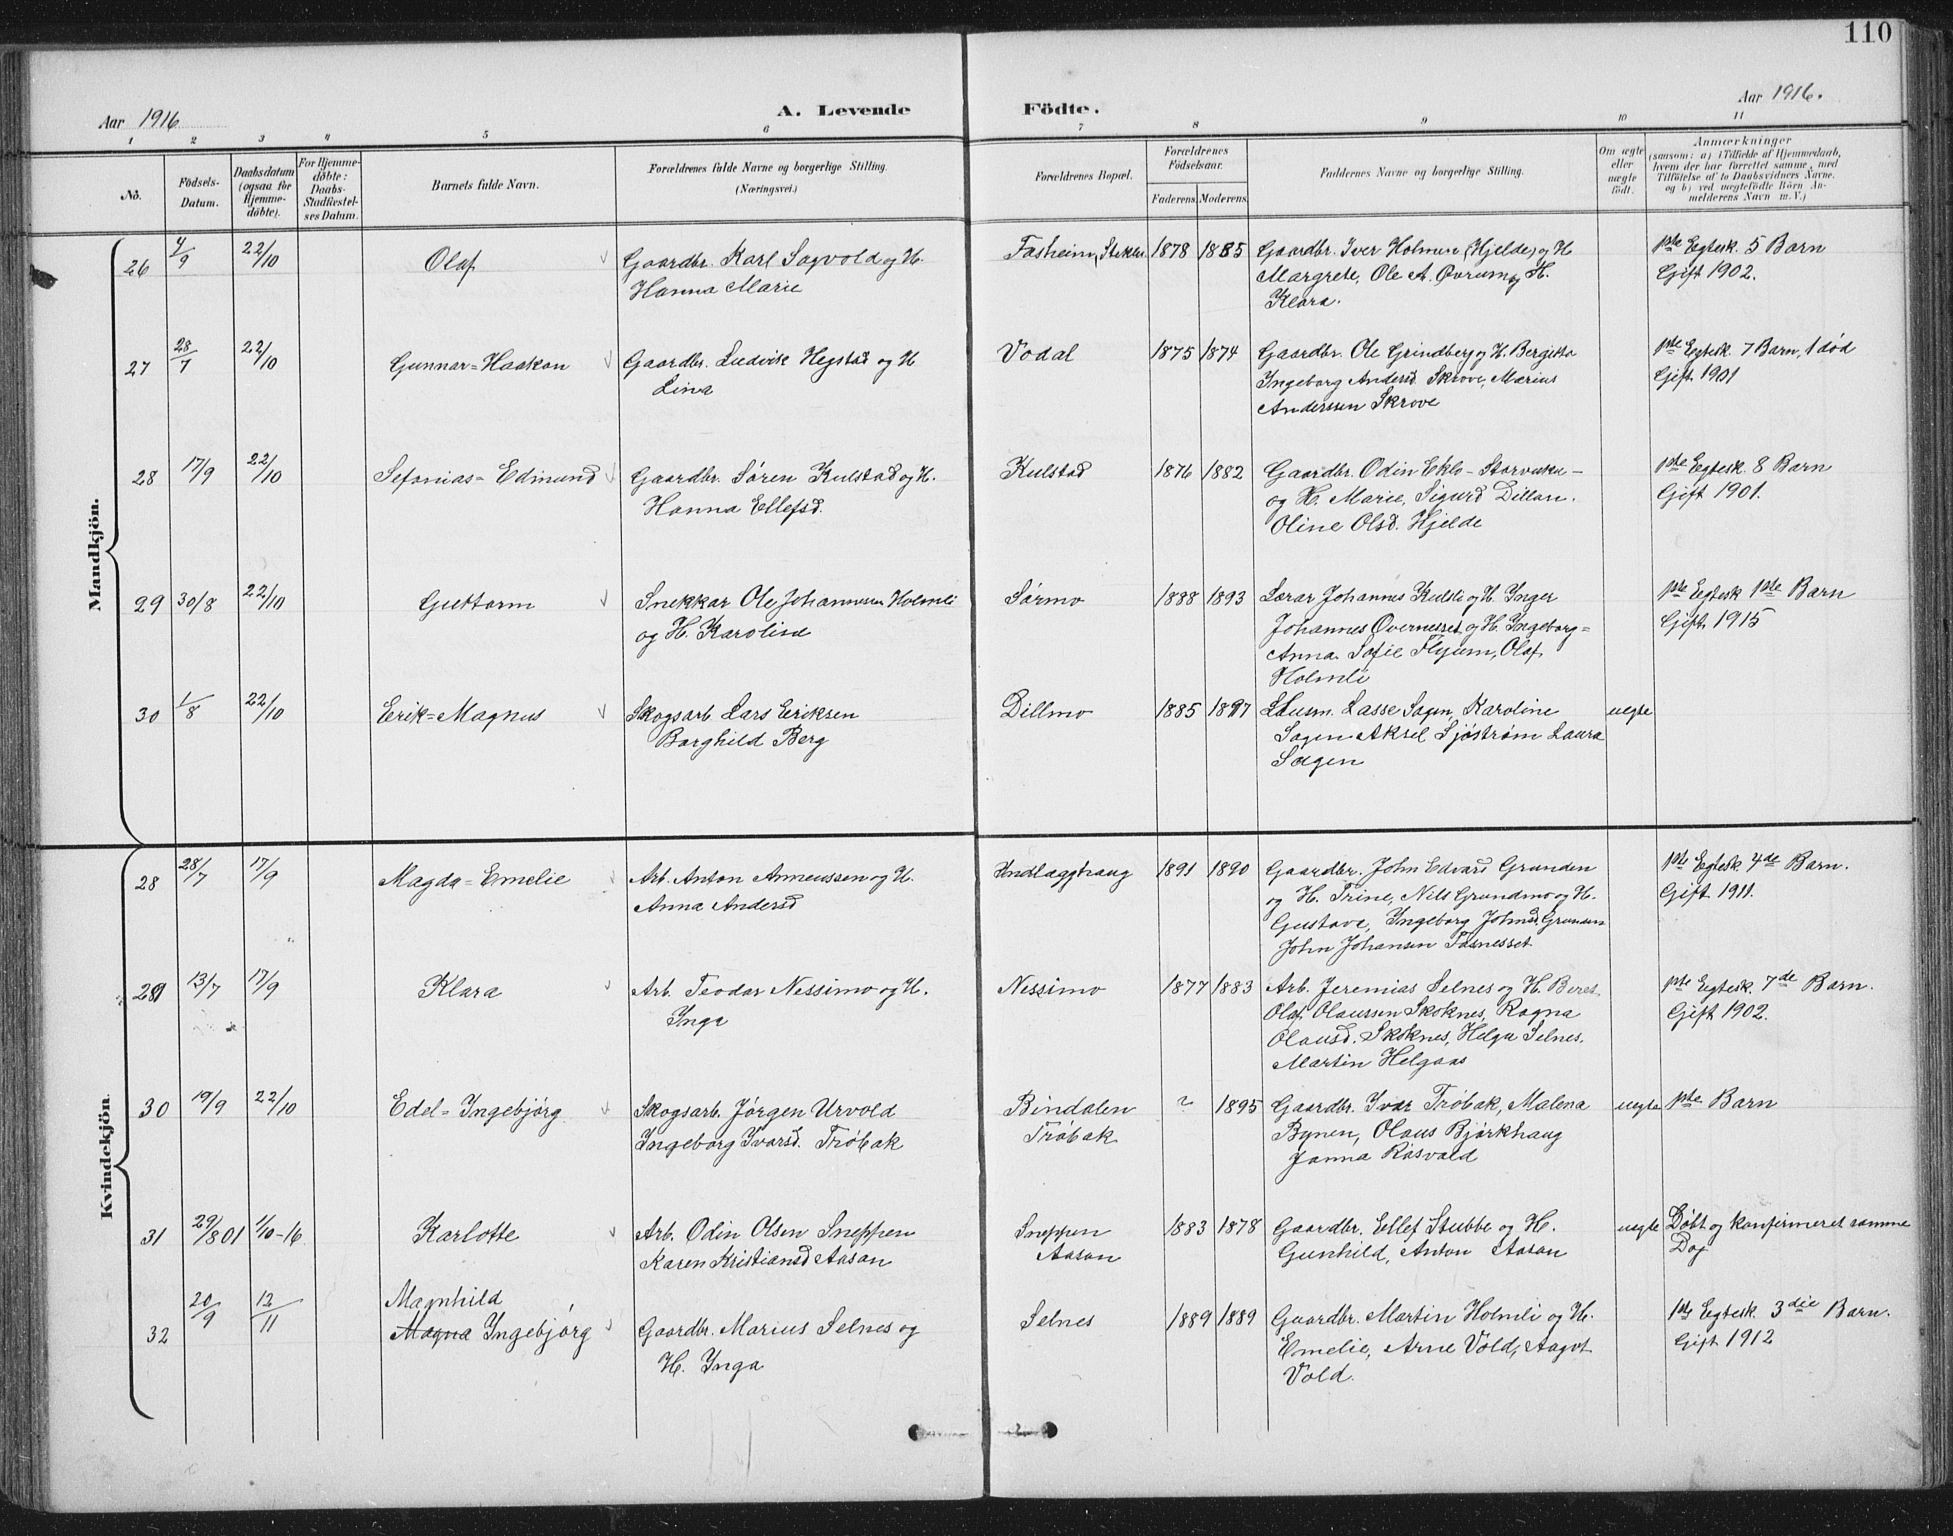 110
Aar 1916
A. Levende Födte.
Aar 1916.
1 2 3 4 5 6 7 8 9 10 11
No.
Födsels-
Datum.
Daabsdatum
(ogsaa for
Hjemme-
døbte).
For Hjemme-
døbte:
Daabs-
Stadfæstel-
ses Datum.
Barnets fulde Navn.
Forældrenes fulde Navne og borgerlige Stilling.
(Næringsvei.)
Forældrenes Bopæl.
Forældrenes
Födselsaar.
Faderens Moderens
Faddernes Navne og borgerlige Stilling.
Om ægte
eller
uægte
født.
Anmærkninger
(saasom: a) i Tilfælde af Hjemmedaab,
hvem der har forrettet samme, med
Tilføielse af to Daabsvidners Navne.
og b) ved uægtefødte Börn An-
melderens Navn m. V.)
Mandkjön.
26 4/9 22/10 Olaf
Gaardbr. Karl Sagvold og H.
Hanna Marie
1878 1885
Gaardbr. Iver Holmen (Hjelde) og H
Margrete, Ole A. Øvrum og H.
Klara.
pte Egtesk. 5 Barn
Gift 1902.
27 28/7 22/10 Gunnar=Haakon
Gaardbr. Ludvik Hegstad og H
Lina
Vodal 1875 1874
Gaardbr. Ole Grindberg og H. Bergitta
Ingeborg Andersd. Skrove, Marius
Anderssen Skrove
pte Egtesk. 7 Barn, 1 død
Gift 1901
28 17/9 22/10 Sefanias=Edmund
Gaardbr. Sören Kulstad og H.
Hanna Ellefsd.
Kulstad 1876 1882
Gaardbr. Odin Eklo-
og H. Marie, Sigurd Dillan.
Oline Olsd. Hjelde
pte Egtesk 8 Barn
Gift 1901.
29 30/8 22/10 Guttorm
Snekkar Ole Johannessen Holmli
og H. Karoline
Sørmo 1888 1893
Lærar Johannes og H. Inger
Johannes Øvernesset og H. Ingeborg=
Anna. Sofie Flyum, Olaf
Holmli
pte Egtesk pte Barn
Gift 1915
30 1/8 22/10 Erik=Magnus
Skogsarb. Lars Eriksen
Borghild Berg
Dillmo 1885 1897
Lasse Sagen, Karoline
Sagen Aksel Sjöström Laura
Sagen
uegte
Kvindekjön.
28 28/7 17/9 Magda=Emelie
Arb. Anton Anneussen og H.
Anna Andersd
1891 1890
Gaardbr. John Edvard Grunden
og H. Trine, Nils Grundmo og H.
Gustava, Ingeborg Johnsd.
John Johansen Tasnesset
pte Egtesk 4de Barn.
Gift 1911.
29 13/7 17/9 Klara
Arb. Teodor Nessimo og H.
Inga
Nessimo 1877 1883
Arb. Jeremias Selnes og H. Beret
Olaf Olaussen Skoknes, Ragna
Olausd. Skoknes, Helga Selnes.
Martin Helgaas
pte Egtesk. 7de Barn.
Gift 1902.
30 19/9 22/10 Edel=Ingebjørg
Skogsarb. Jørgen Urvold
Ingeborg Ivarsd. Trøbak
Bindalen
Trøbak
? 1895
Gaardbr. Ivar Trøbak, Malena
Bynen, Olaus Bjørkhaug
Janna Rosvold
uegte pte Barn
31 29/8 01 1/10-16 Karlotte
Arb. Odin Olsen Sneppen
Karen Kristiansd Aasan
Sneppen
Aasan
1883 1878
Gaardbr. Ellef Stubbe og H.
Gunhild, Anton Aasan
uegte
Døbt og konfirmeret samme
Dag
32 20/9 12/11
Magnhild
Magna Ingebjørg
Gaardbr. Marius Selnes og
H. Inga
Selnes 1889 1889
Gaardbr. Martin Holmli og H.
Emelie, Arne Vold, Aagot
Vold.
pte Egtesk. 3die Barn.
Gift 1912